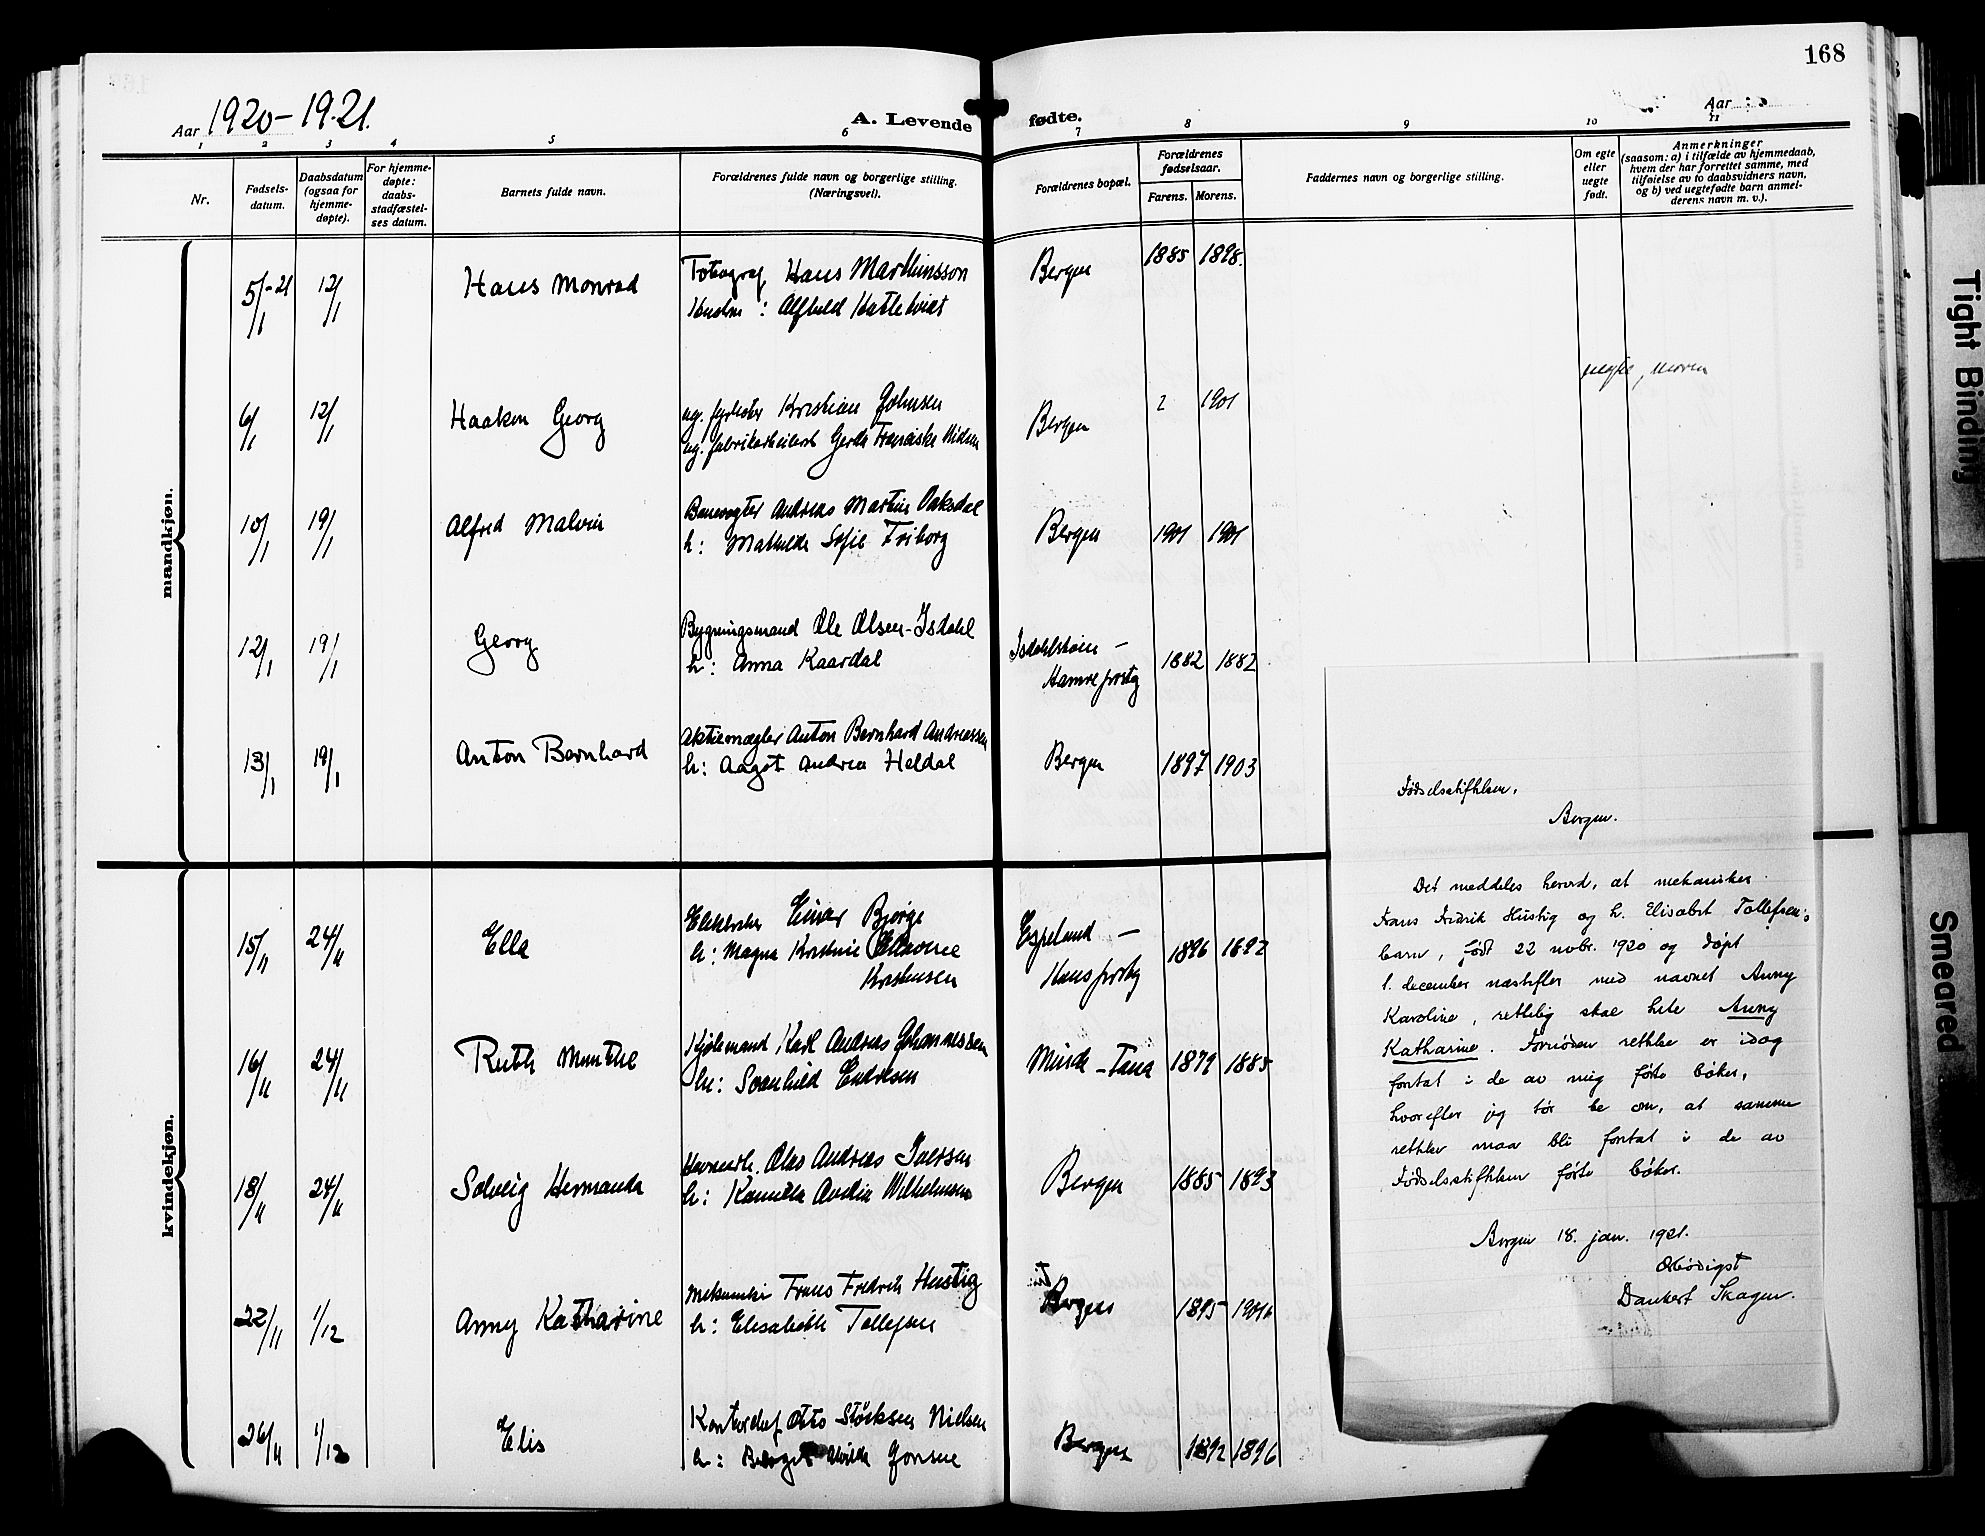 168
Aar 1920-1921.
A. Levende fødte.
Aar
1 2 3 4 5 6 7 8 9 10 11
Nr.
Fødsels-
datum.
Daabsdatum
(ogsaa for
hjemme-
døpte).
For hjemme-
døpte:
daabs-
stadfæstel-
ses datum.
Barnets fulde navn.
Forældrenes fulde navn og borgerlige stilling.
(Næringsvei).
Forældrenes bopæl.
Forældrenes
fødselsaar.
Farens. Morens.
Faddernes navn og borgerlige stilling.
Om egte
eller
uegte
født.
Anmerkninger
(saasom: a) i tilfælde av hjemmedaab,
hvem der har forrettet samme, med
tilføielse av to daabsvidners navn,
og b) ved uegtefødte barn anmel-
derens navn m. v.).
mandkjøn.
5/1-21 12/1 Hans Monrad Fotograf Hans Marthinsson Bergen 1885 1898.
: Alfhild
6/1 12/1 Haakon Georg ug. fyrbøter Kristian Johnsen Bergen 1901 uegte, moren
ug. fabrikarbeiderst Gerda Franciska
10/1 19/1 Alfred Malvin Banevogter Andreas Martin Daksdal Bergen 1901 1901
h: Mathilde Sofie Friborg
12/1 19/1 Georg Bygningsmand Ole Olsen-Isdahl Isdahlstøen – 1882 1882
h: Anna Kaardal Hamre prstg
13/1 19/1 Anton Bernhard Aktiemægler Anton Bernhard Andreassen Bergen 1897 1903
h: Aagot Andrea Heldal
kvindekjøn.
15/11 24/11 Ella Elektriker Einar Bjørge Espeland – 1896 1892
h: Magna Kristine
Kristensen Haus prstg
16/11 24/11 Ruth Munthe Karl Andreas Johannessen Minde – Fana 1879 1885
h: Svanhild Endresen
18/11 24/11 Solveig Hermanda Olas Andreas Iversen Bergen 1885 1893
h: Kamilla Wilhelmsen
22/11 1/12 Anny Katharine Mekaniker Frans Fredrik Hustig Bergen 1895
h: Elisabeth Tollefsen
26/11 1/12 Elis Kontorchef Otto Størksen Nielsen Bergen 1892 1896
h: Jonsen
Fødselsstiftelsen,
Bergen.
Det meddeles herved, at mekaniker
Frans Fridrik Hustig og h. Elisabet Tollefsen's
barn, født 22 novbr. 1920 og døpt
1. december næstefter med navnet Anny
Karoline, rettelig skal hete Anny
Katharine. Fornøden rettelse er idag
foretat i de av mig førte bøker,
hvorefter jeg tør be om, at samme
rettelse maa bli foretat i de av
Fødselsstiftelsen førte bøker.
Bergen 18. jan. 1921.
Ærbødigst
Dankert Skagen.
Tight Binding
Smeared